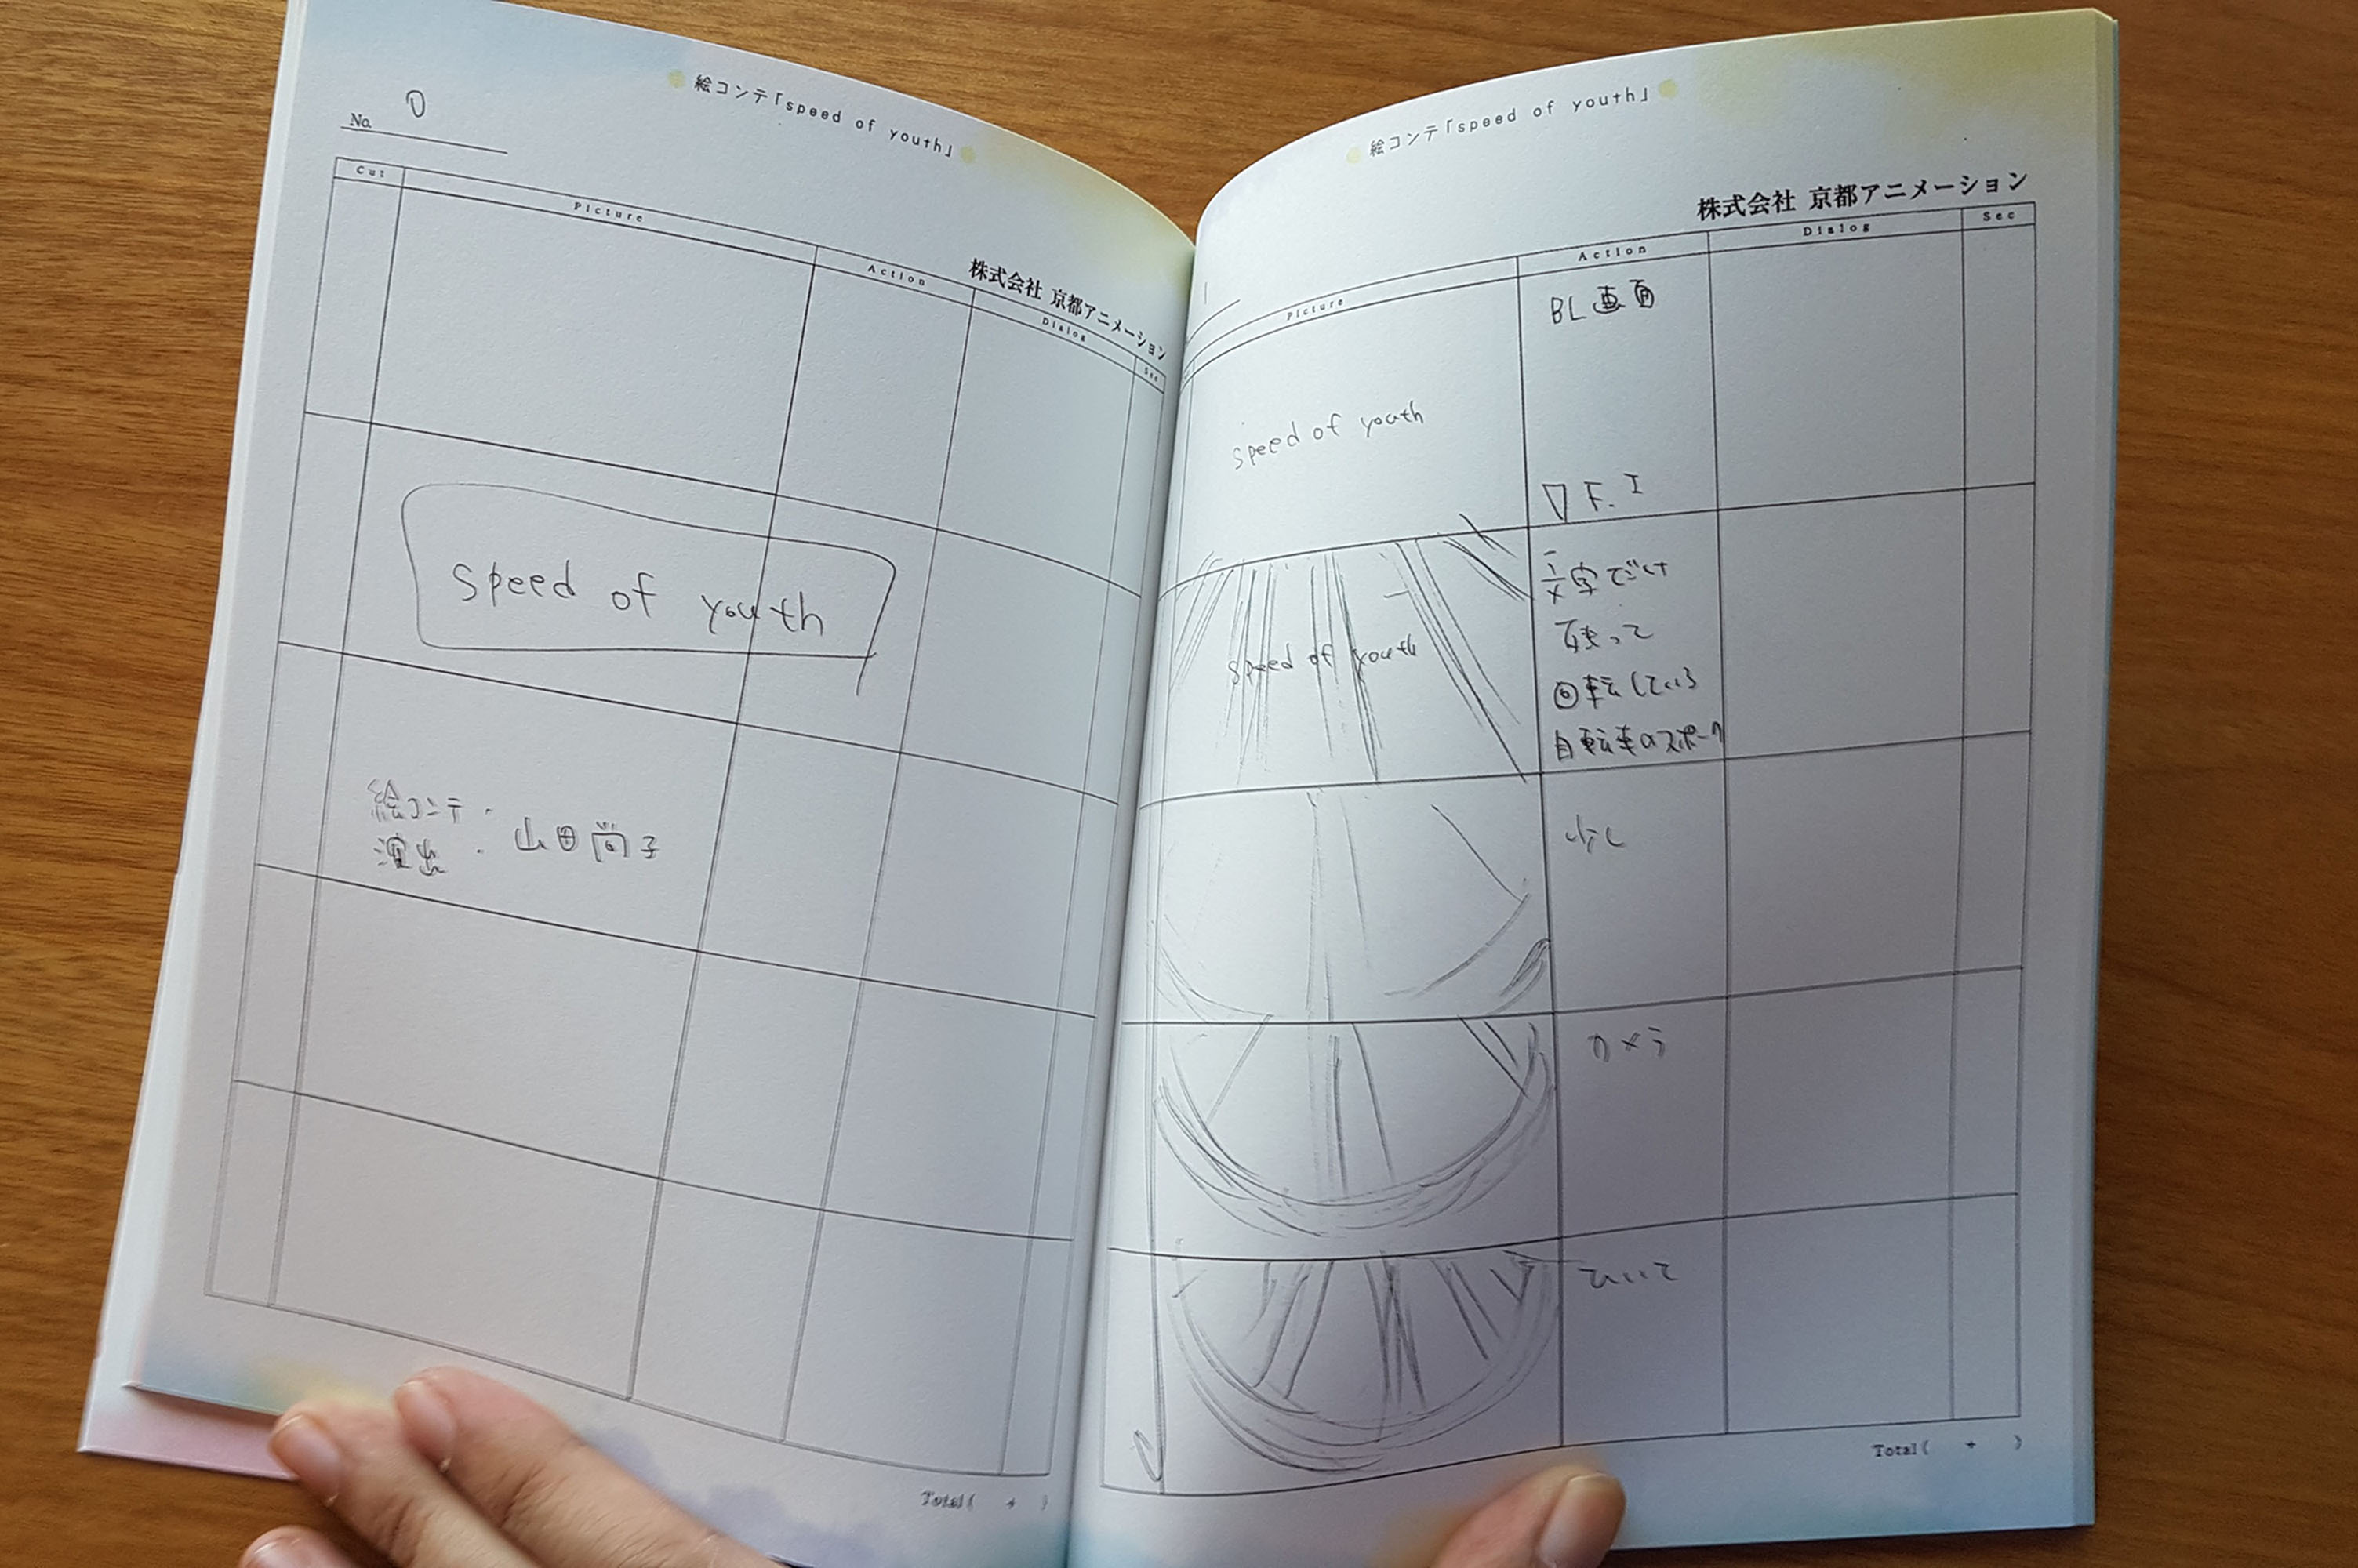 絵コンテ「speed of youth」
No. 0
株式会社 京都アニメーション
Cut Picture Action Dialog Sec
speed of youth
絵コンテ・
演出・山田尚子
Total( + )
絵コンテ「speed of youth」
1
株式会社 京都アニメーション
Picture Action Dialog Sec
BL画面
speed of youth
▽ F.I
文字だけ
残って
回転している
自転車のスポーク
speed of youth
少し
カメラ
ひいて
Total( + )